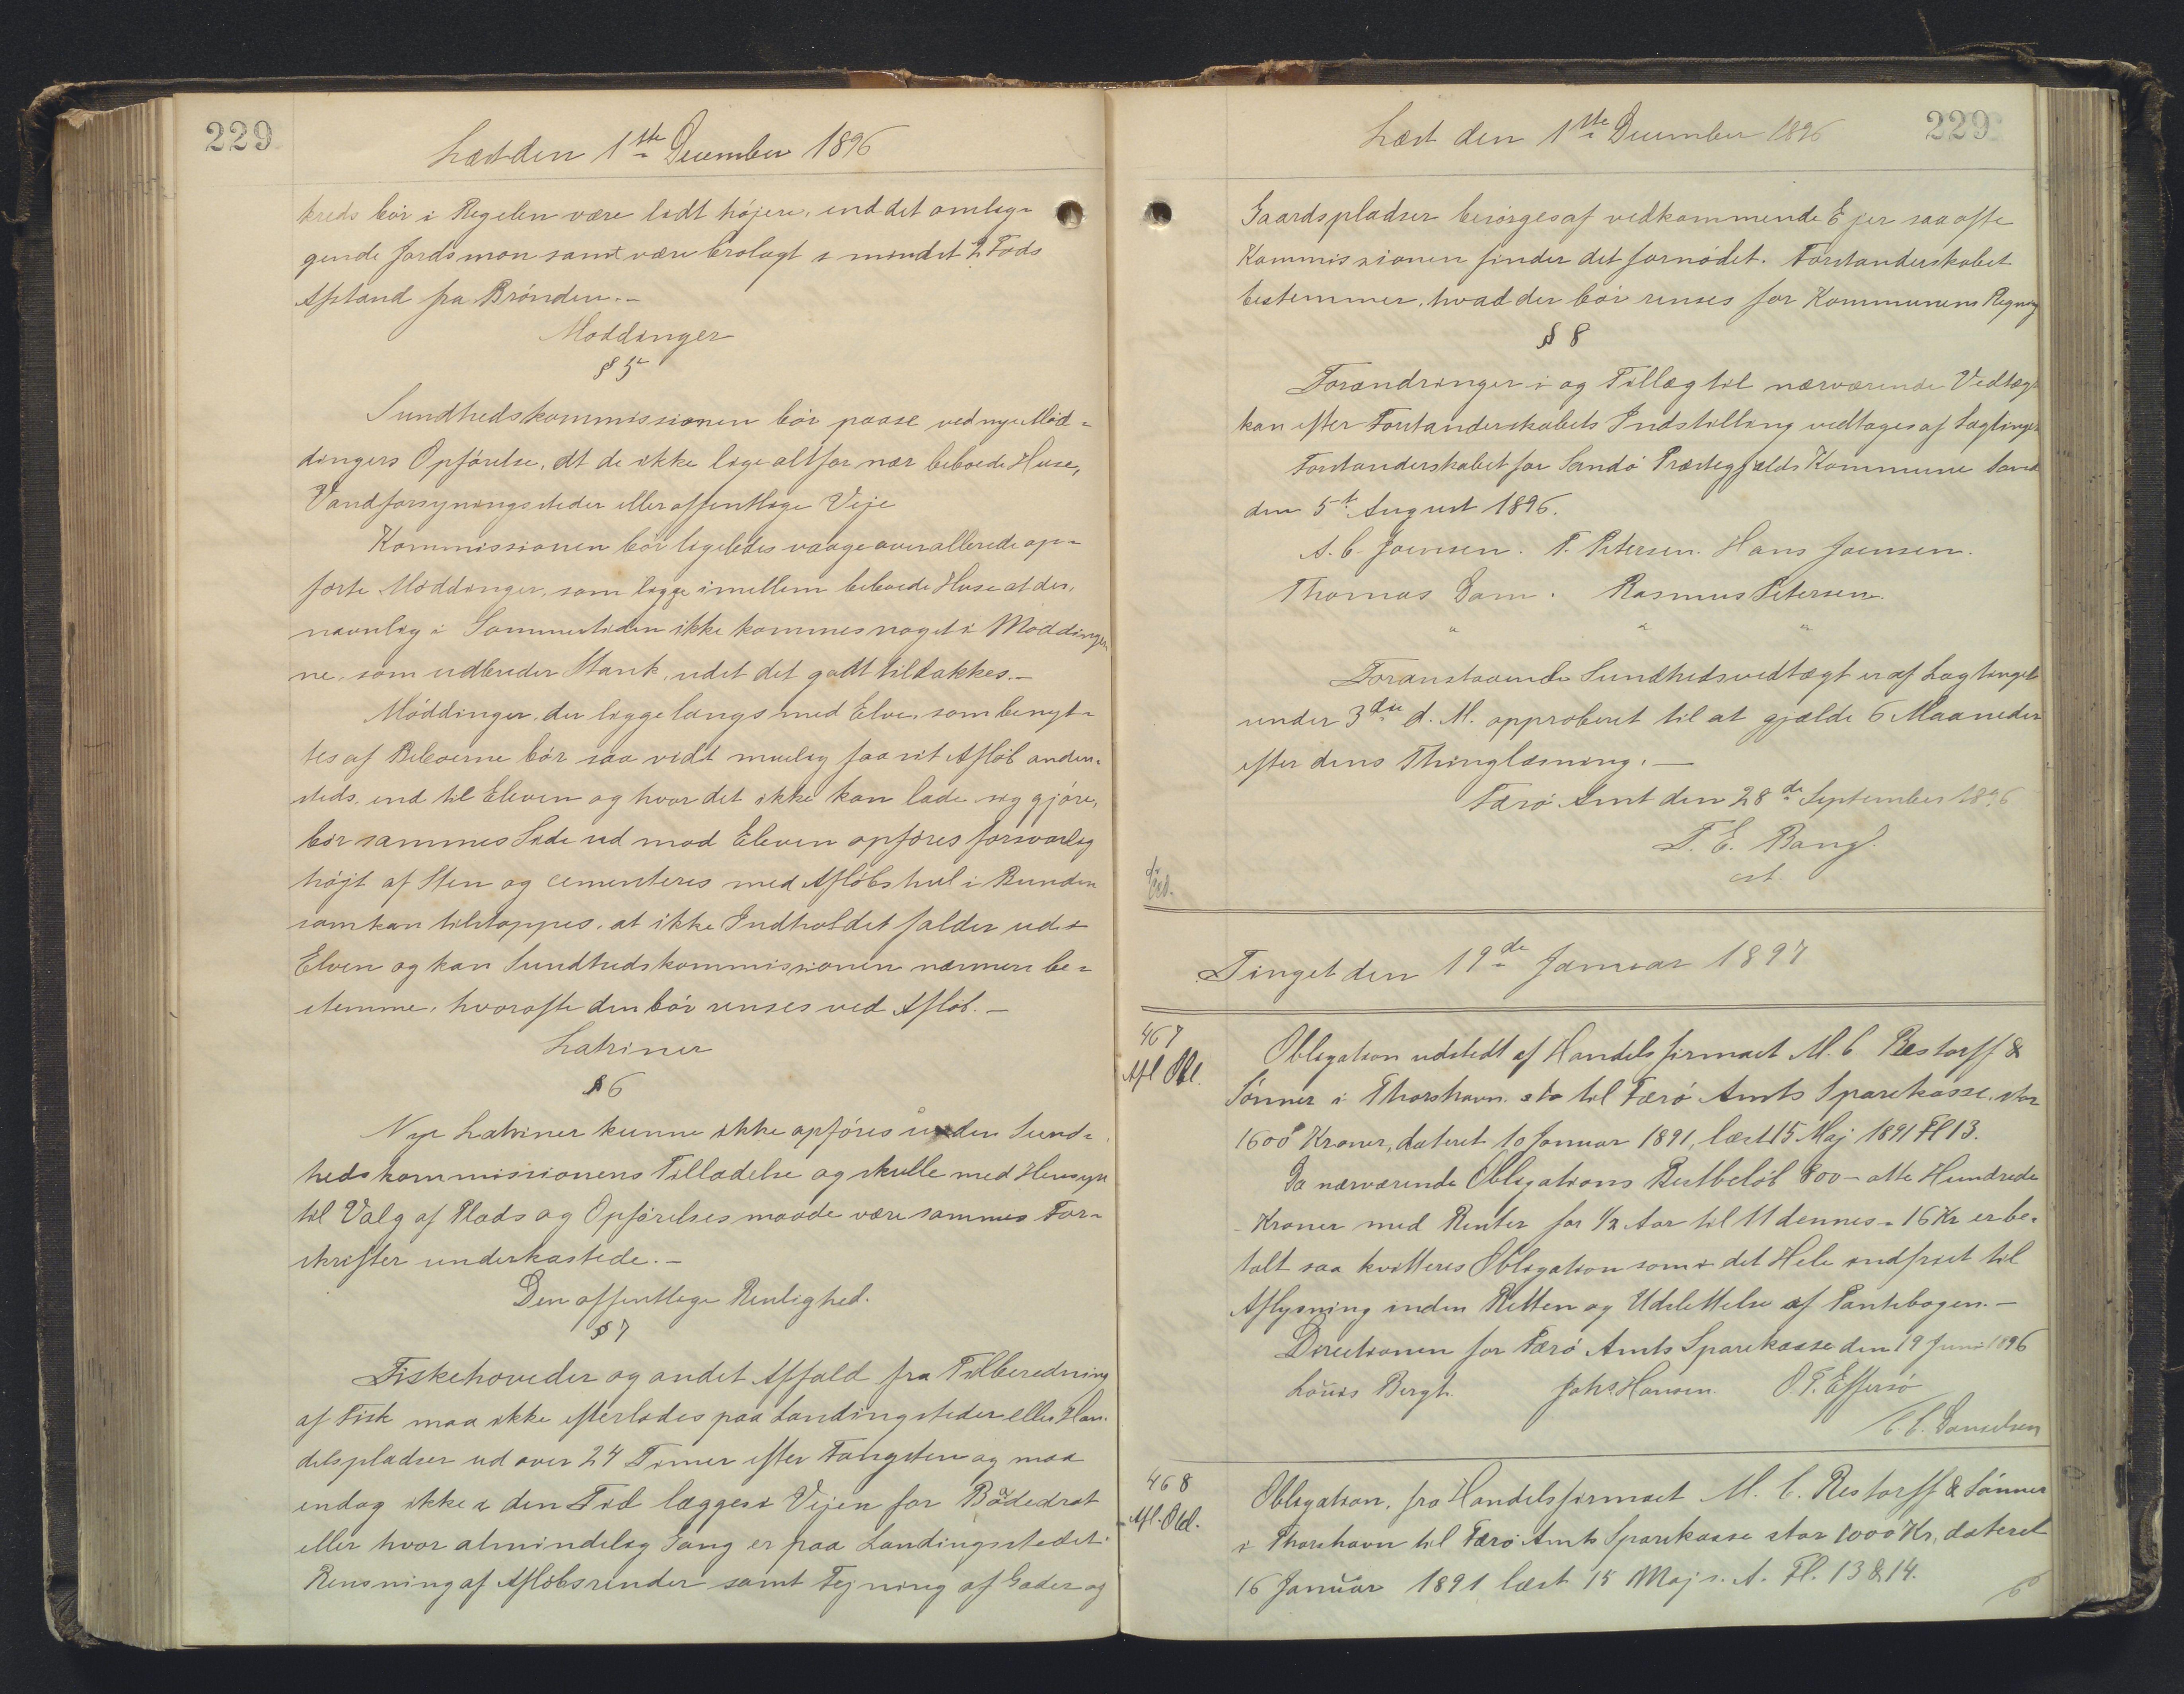 229
Læst den 1ste December 1896
kreds bör i Regelen være lidt højere, end det omlig=
gende Jordsmon samt være brolagt i mindst 2 Fods
Afstand fra Brönden.-
Möddinger
§ 5
Sundhedskommissionen bör paase ved nye Möd=
dingers Opförelse, at de ikke lige altfor nær beboede Huse,
Vandforsyningssteder eller offentlige Veje
Kommissionen bör ligeledes vaage over allerede op=
förte Möddinger, som ligge imellem beboede Huse at der,
navnlig i Sommertiden ikke kommes noget i Möddinger
ne, som udbreder Stank, udet det godt tildækkes.-
Möddinger, der ligge langs med Elve, som benyt=
tes af Beboerne bör saa vidt muelig faa sit Aflöb anden=
steds, end til Elven og hvor det ikke kan lade sig gjöre,
bör sammes Side ud mod Elven opföres forsvarlig
höjt af Sten og cementeres med Aflöbshul i Bunden
som kan tilstoppes, at ikke Indholdet falder ud i
Elven og kan Sundhedskommissionen nærmere be=
stemme, hvorofte den bör renses ved Aflöb.-
Latriner
§ 6
Nye Latriner kunne ikke opföres uden Sund=
hedskommissionens Tilladelse og skulle med Hensyn
til Valg af Plads og Opförelsesmaade være sammes For=
skrifter underkastede.-
Den offentlige Renlighed.
§ 7
Fiskehoveder og andet Affald fra Tilberedning
af Fisk maa ikke efterlades paa Landingssteder eller Han=
delspladser ud over 24 Timer efter Fangsten og maa
endog ikke i den Tid lægges i Vejen for Baadedræt
eller hvor almindelig Gang er paa Landingsstedet.
Rensning af Aflöbsrender samt Fejning af Gader og
Læst den 1ste December 1896
229
Gaardspladser besörges af vedkommende Ejer saa ofte
Kommissionen finder det fornödet. Forstanderskabet
bestemmer, hvad der bör renses for Kommunens Regning
§ 8
Forandringer i og Tillæg til nærværende Vedtægt
kan efter Forstanderskabets Indstilling vedtages af Lagtinget
Forstanderskabet for Sandö Præstegjælds Kommune Sand
den 5t August 1896.
A. C. Joensen. P. Petersen. Hans Joensen.
Thomas Dam. Rasmus Petersen.
" " "
Foranstaaende Sundhedsvedtægt er af Lagtinget
under 3die d. M. approberet til at gjælde 6 Maaneder
efter dens Thinglæsning.-
Færö Amt den 28de September 1896
F. E. Bang.
cst.
Tinget den 19de Januar 1897
467
Afl Obl.
Obligation udstedt af Handelsfirmaet M. C. Restorff &
Sönner i Thorshavn til Færö Amts Sparekasse, stor
1600 Kroner, dateret 10 Januar 1891, læst 15 Maj 1891 Fl 13.
Da nærværende Obligations Restbelöb 800 - otte Hundrede
Kroner med Renter for 1/2 Aar til 11 dennes - 16 Kr er be=
talt saa kvitteres Obligation som i det Hele indfriet til
Aflysning inden Retten og Udslettelse af Pantebogen.-
Directionen for Færö Amts Sparekasse den 19 Juni 1896
Louis Bergh. Johs. Hansen. O. P. Effersö
C. C. Danielsen
468
Afl. Obl.
Obligation, fra Handelsfirmaet M. C. Restorff & Sönner
i Thorshavn til Færö Amts Sparekasse stor 1000 Kr, dateret
16 Januar 1891 læst 15 Maj s. A. Fl. 13 & 14.